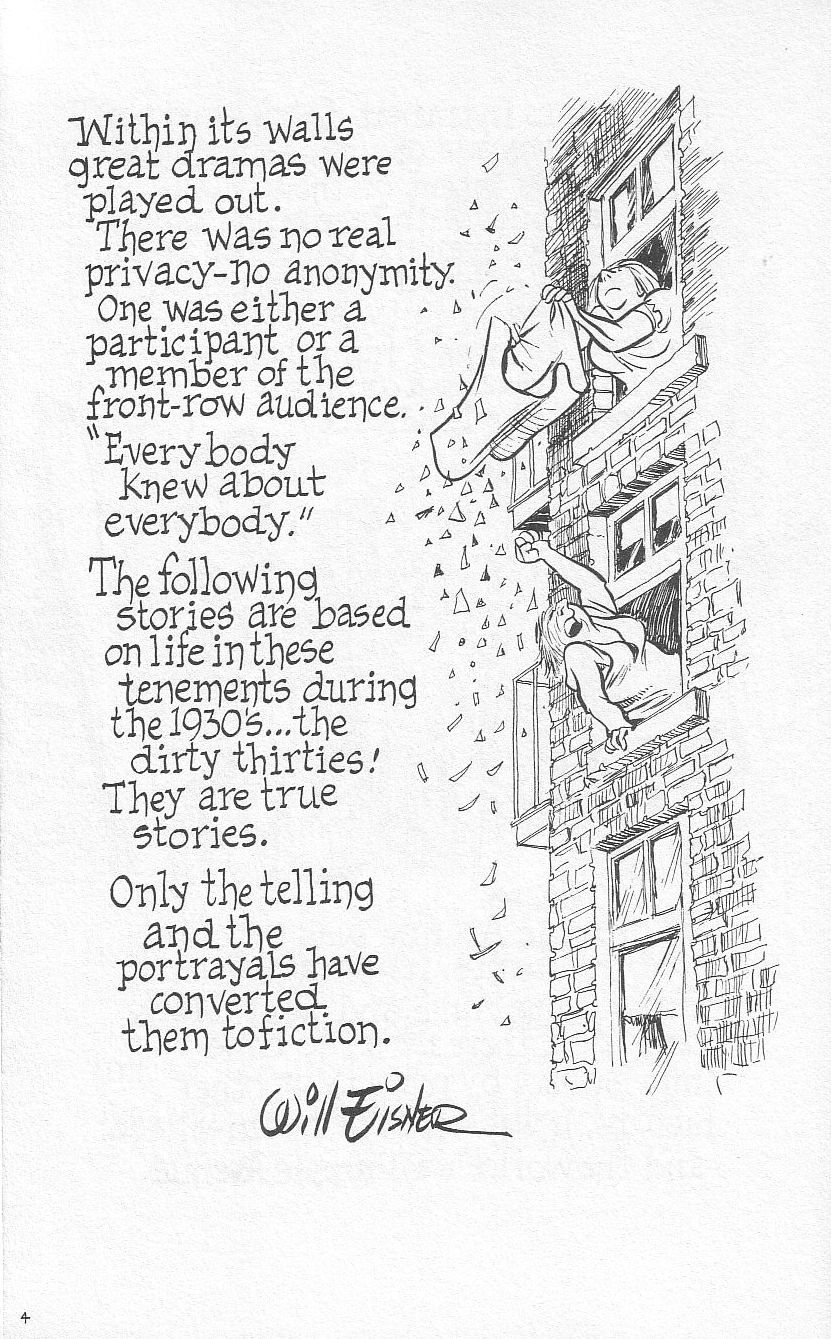 Within its walls
great dramas were
played out.
There was no real
privacy-no anonymity.
One was either a
participant or a
member of the
front-row audience.
"Everybody
knew about
everybody."
The following
stories are based
on life in these
tenements during
the 1930's...the
dirty thirties!
They are true
stories.
Only the telling
and the
portrayals have
converted
them to fiction.
Will Eisner
4